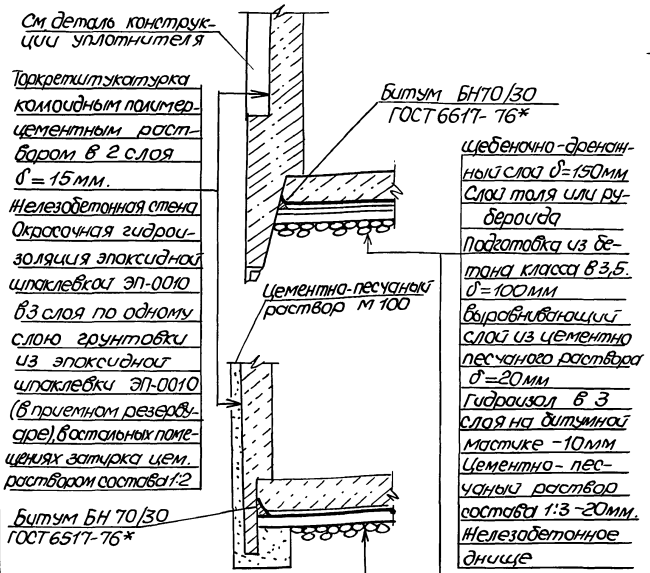 См. деталь конструк-
ции уплотнителя
Торкретштукатурка
коллоидным полимер-
цементным раст-
вором в 2 слоя
δ=15мм.
Железобетонная стена
Окрасочная гидрои-
золяция эпоксидной
шпаклевкой ЭП-0010
в 3 слоя по одному
слою грунтовки
из эпоксидной
шпаклевки ЭП-0010
(в приемном резерву-
аре), в остальных поме-
щениях затирка цем.
раствором состава 1:2
Битум БН 70/30
ГОСТ 6517-76*
Битум БН70/30
ГОСТ 6617-76*
Цементно-песчаный
раствор М 100
Щебеночно-дренаж-
ный слой δ=150мм
Слой толя или ру-
бероида
Подготовка из бе-
тона класса в 3,5.
δ=100мм
Выравнивающий
слой из цементно
песчаного раствора
δ=20мм
Гидраизол в 3
слоя на битумной
мастике -10мм
Цементно-пес-
чаный раствор
состава 1:3-20мм.
Железобетонное
днище